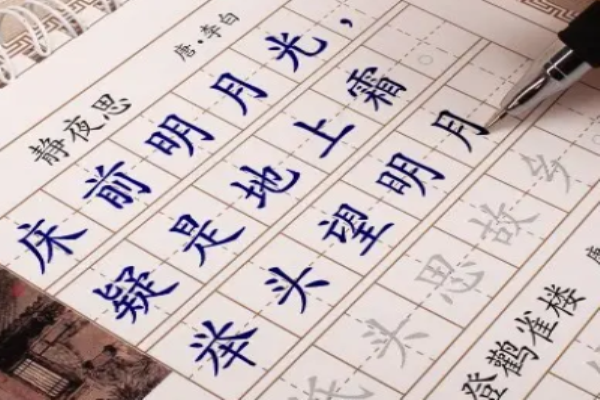 静夜思 唐·李白
床前明月光，
疑是地上霜。
举头望明月
低头思故乡
登鹳雀楼